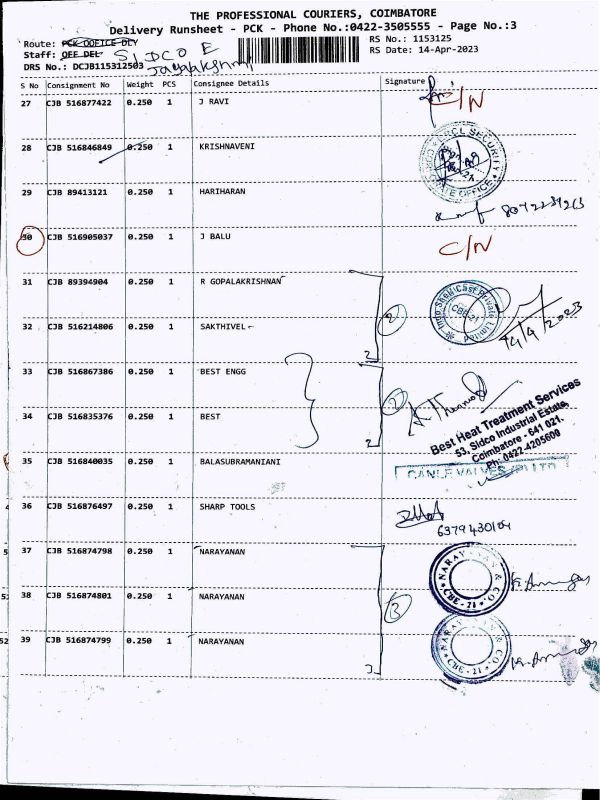 THE PROFESSIONAL COURIERS, COIMBATORE
Delivery Runsheet - PCK - Phone No.:0422-3505555 - Page No.:3
Route: PCK OOFICE DLY
RS No.: 1153125
Staff: OFF DEL SIDCO E
RS Date: 14-Apr-2023
DRS No.: DCJB115312503
S No Consignment No Weight PCS Consignee Details Signature
27 CJB 516877422 0.250 1 J RAVI C/N
28 CJB 516846849 0.250 1 KRISHNAVENI
29 CJB 89413121 0.250 1 HARIHARAN
30 CJB 516905037 0.250 1 J BALU C/N
31 CJB 89394904 0.250 1 R GOPALAKRISHNAN
32 CJB 516214806 0.250 1 SAKTHIVEL 2 2 14/4/2023
33 CJB 516867386 0.250 1 BEST ENGG
34 CJB 516835376 0.250 1 BEST 2 2
Best Heat Treatment Services
53, Sidco Industrial Estate,
Coimbatore - 641 021.
Ph: 0422-4205600
35 CJB 516840035 0.250 1 BALASUBRAMANIANI
CANLE VALVES (P) LTD
36 CJB 516876497 0.250 1 SHARP TOOLS
37 CJB 516874798 0.250 1 NARAYANAN
NARAYANAN & CO. CBE - 21
38 CJB 516874801 0.250 1 NARAYANAN 3
39 CJB 516874799 0.250 1 NARAYANAN 3
NARAYANAN & CO. CBE - 21